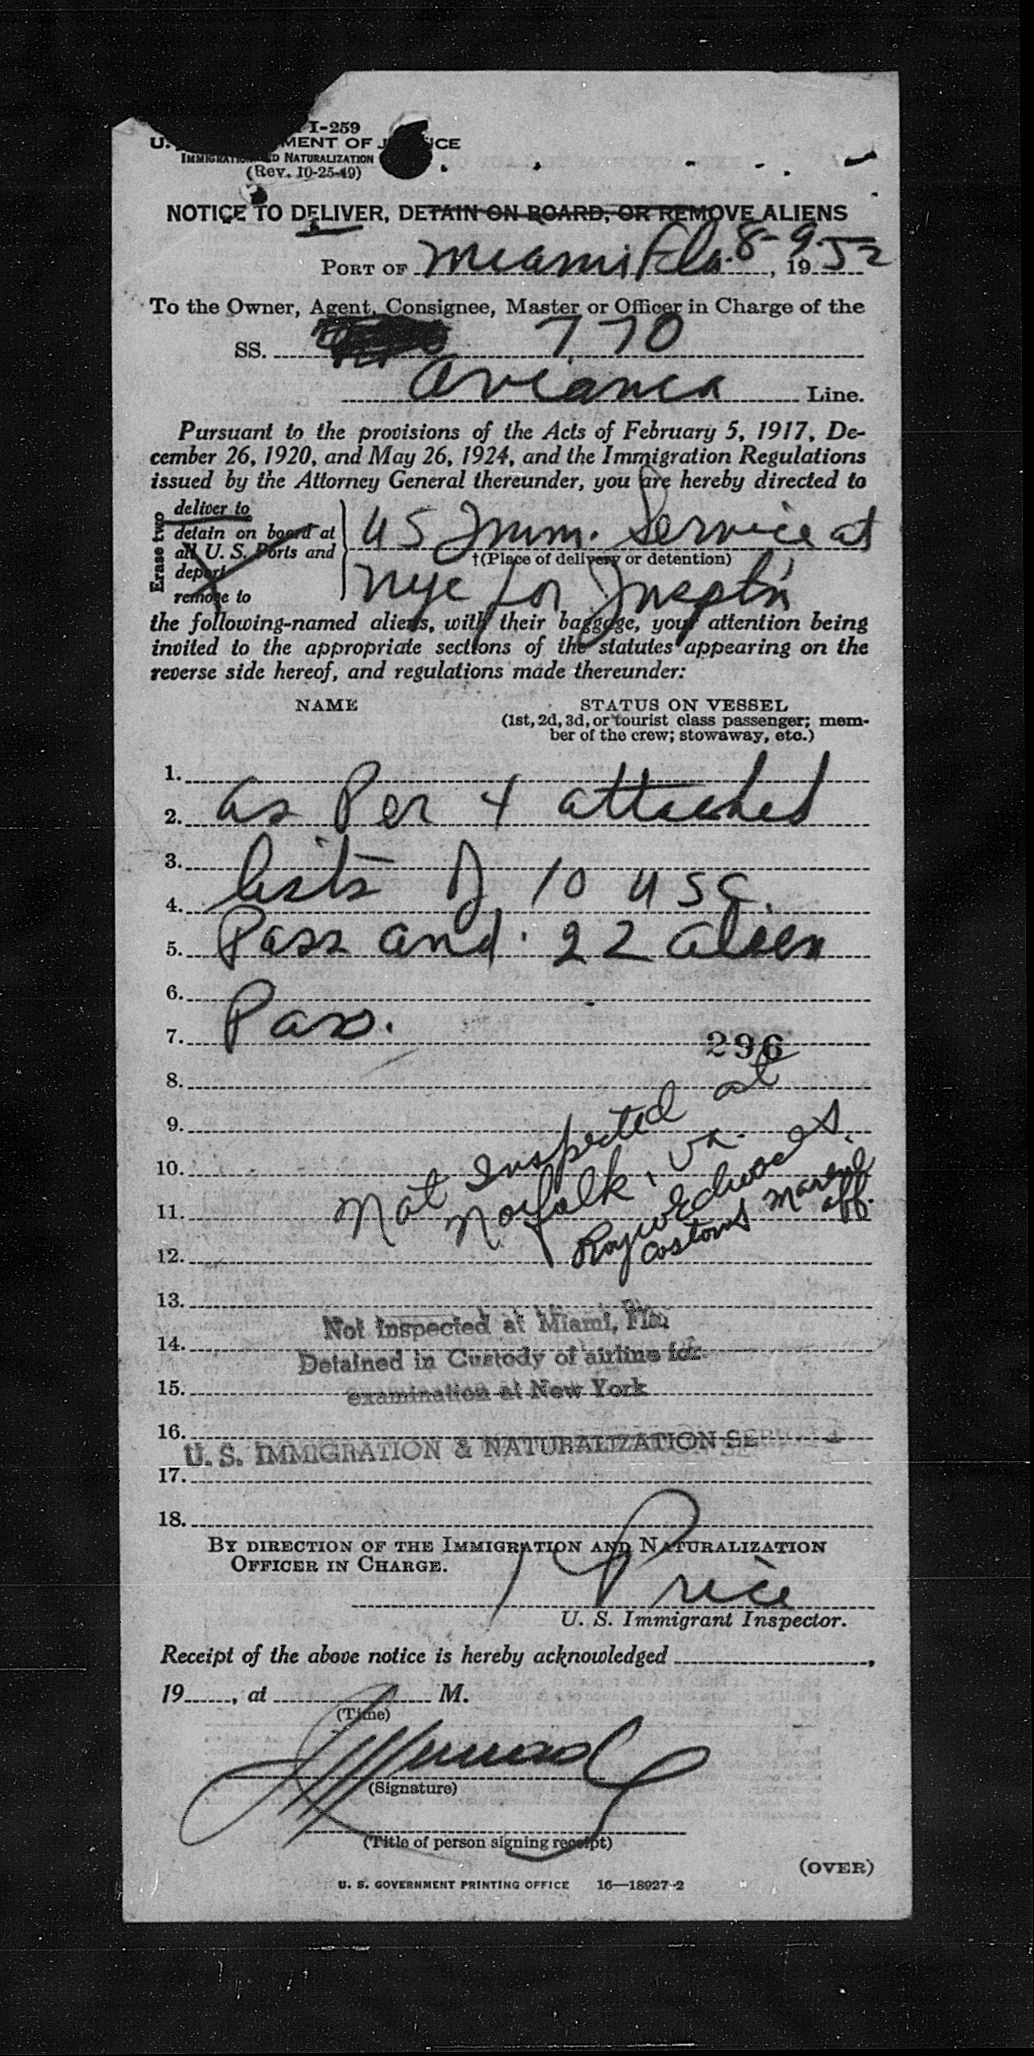 I-259
MENT OF J CE
IMMIGRATION ND NATURALIZATION
(Rev. 10-25-49)
NOTICE TO DELIVER, DETAIN ON BOARD, OR REMOVE ALIENS
PORT OF Miami Fla. 8-9, 1952
To the Owner, Agent, Consignee, Master or Officer in Charge of the
SS. 770
Avianca Line.
Pursuant to the provisions of the Acts of February 5, 1917, De-
cember 26, 1920, and May 26, 1924, and the Immigration Regulations
issued by the Attorney General thereunder, you are hereby directed to
Erase two
deliver to
detain on board at
all U. S. Ports and
deport
remove to
US Imm. Service at
†(Place of delivery or detention)
NYC for Insptn
the following-named aliens, with their baggage, your attention being
invited to the appropriate sections of the statutes appearing on the
reverse side hereof, and regulations made thereunder:
NAME STATUS ON VESSEL
(1st, 2d, 3d, or tourist class passenger; mem-
ber of the crew; stowaway, etc.)
1.
2. as Per 4 attached
3.
4. lists of 10 USC.
5. Pass and 22 alien
6.
7. Pass. 296
8.
9.
10. Not Inspected at
11. Norfolk, Va.
12. Roy W Edwards.
Customs Marine
Off.
13. Not Inspected at Miami, Fla.
14. Detained in Custody of airline for
15. examination at New York
16. U. S. IMMIGRATION & NATURALIZATION SERVICE
17.
18.
BY DIRECTION OF THE IMMIGRATION AND NATURALIZATION
OFFICER IN CHARGE.
Price
U. S. Immigrant Inspector.
Receipt of the above notice is hereby acknowledged ,
19 , at M.
(Time)
(Signature)
(Title of person signing receipt)
(OVER)
U. S. GOVERNMENT PRINTING OFFICE 16—18927-2